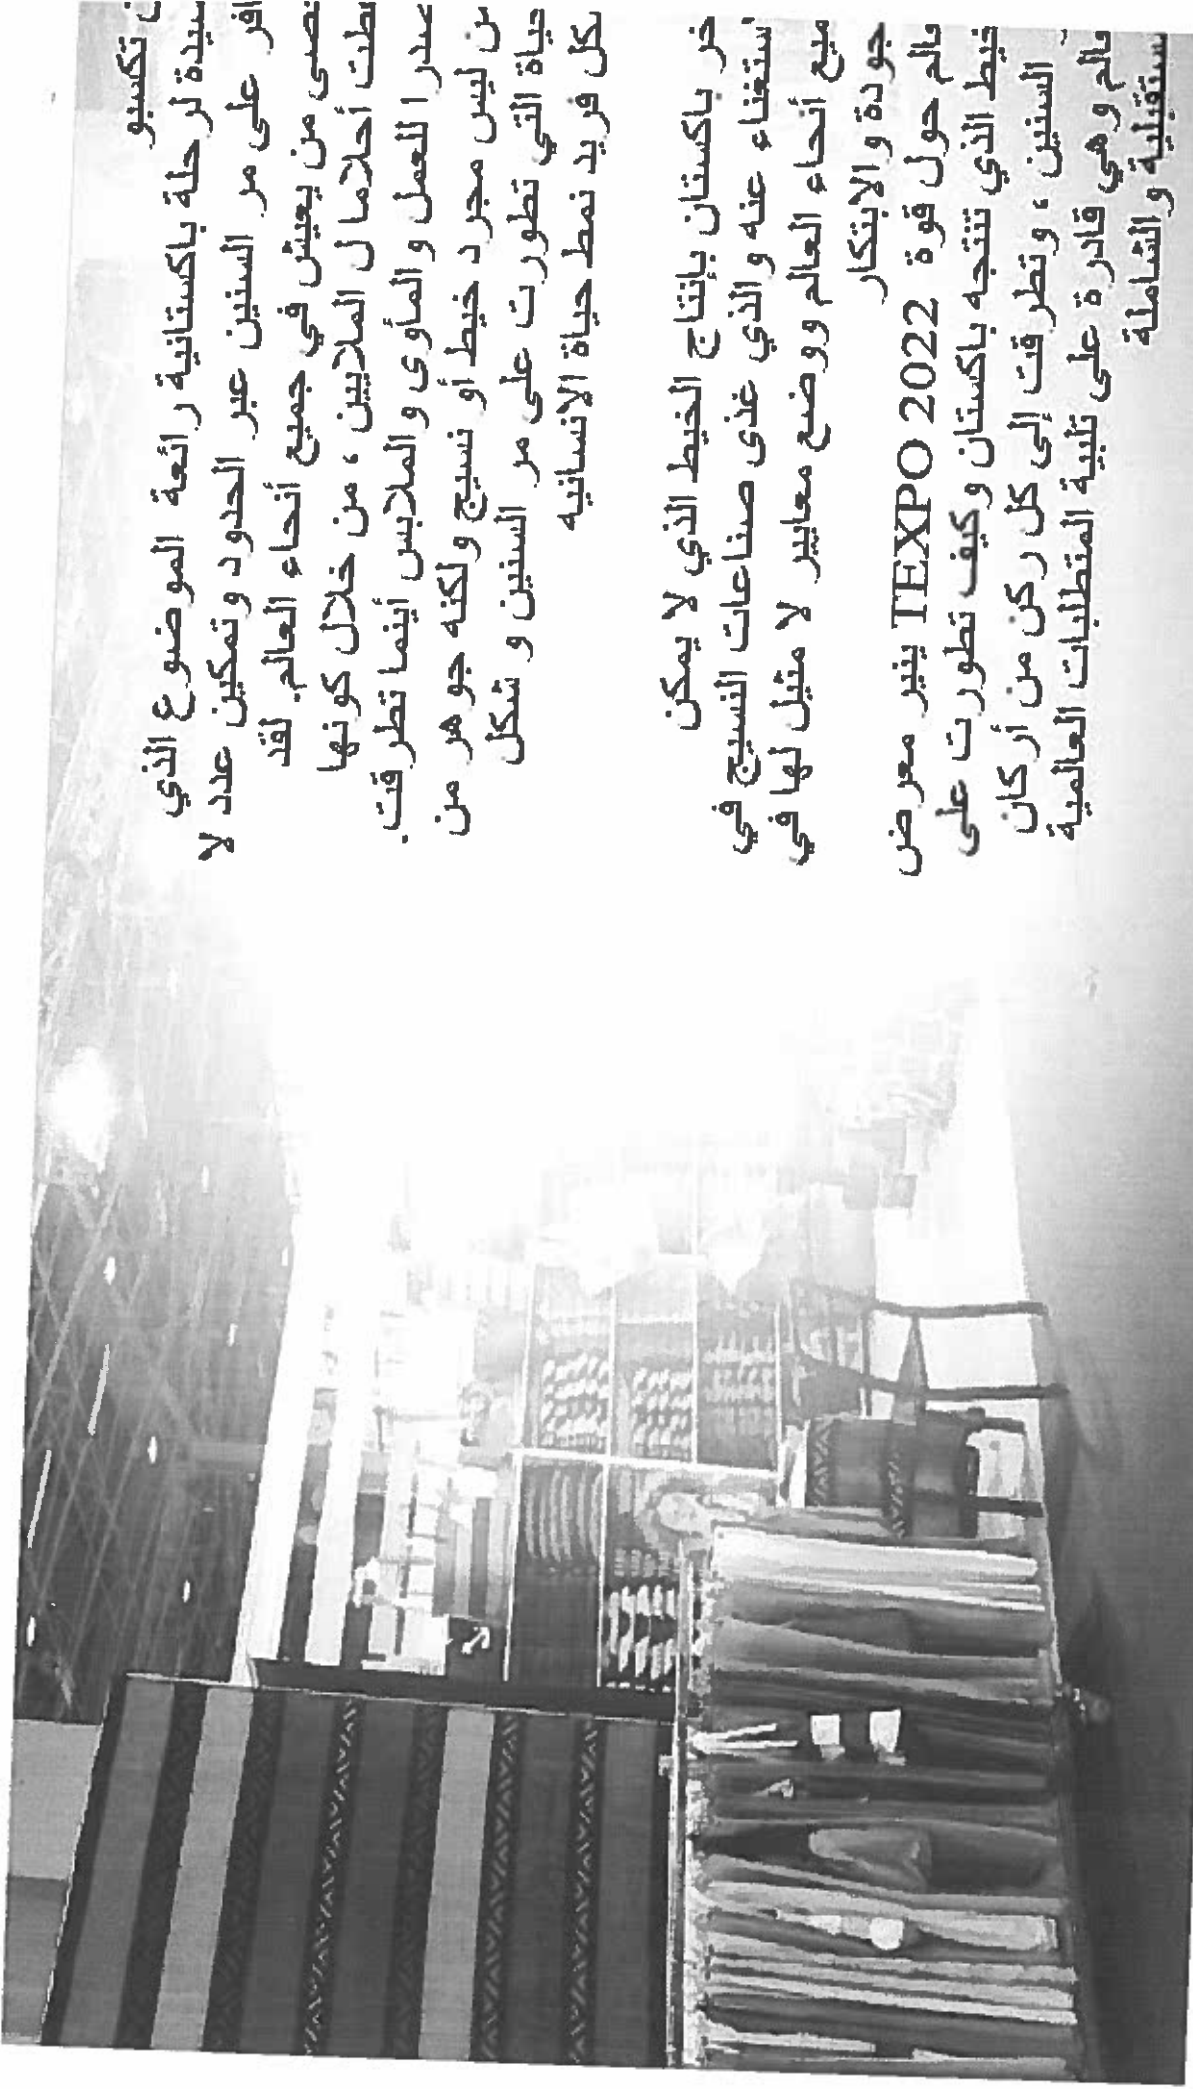 تكسبو
لرحلة باكستانية رائعة الموضوع الذي
على مر السنين عبر الحدود وتمكين عدد لا
من يعيش في جميع أنحاء العالم. لقد
أحلاما ل الملايين ، من خلال كونها
للعمل والمأوى والملابس أينما تطرقت.
ليس مجرد خيط أو نسيج ولكنه جوهر من
حياة التي تطورت على مر السنين و شكل
فريد نمط حياة الانسانيه
باكستان بإنتاج الخيط الذي لا يمكن
استغناء عنه والذي غذى صناعات النسيج في
أنحاء العالم ووضع معايير لا مثيل لها في
جودة والابتكار
حول قوة TEXPO 2022 ينير معرض
الذي تنتجه باكستان وكيف تطورت على
السنين ، وتطرقت إلى كل ركن من أركان
وهي قادرة على تلبية المتطلبات العالمية
والشاملة